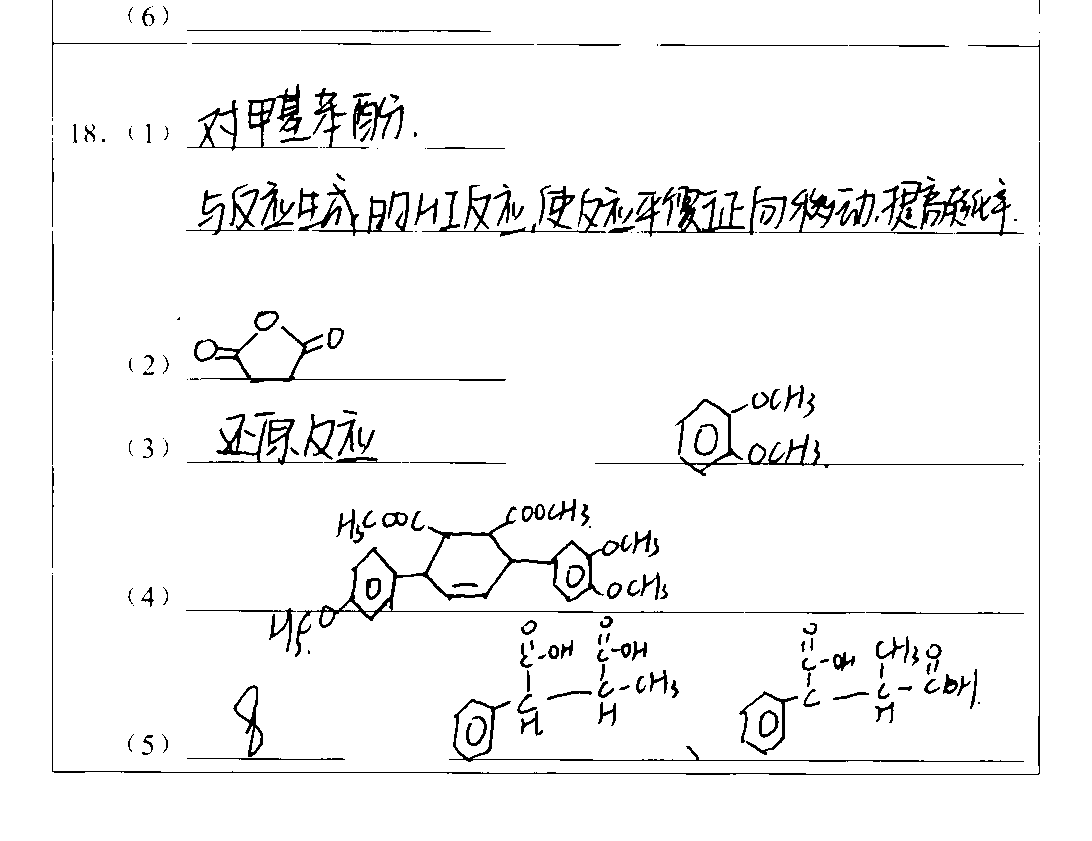 (6)
18. (1) 对甲基苯酚.
与反应生成的HI反应,使反应平衡正向移动.提高转化率.
(2) O O O
(3) 还原反应 OCH3 OCH3.
H3COOC COOCH3.
OCH3
(4) OCH3
H3CO
O O O
C-OH C-OH C-OH CH3 O
C C-CH3 C C-COH
H H H
(5) 8 、